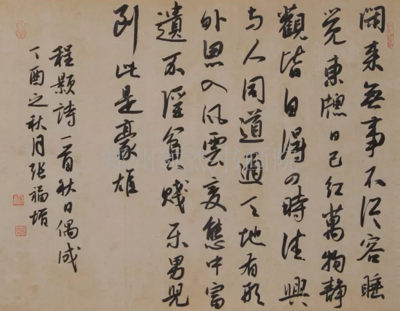 闲来無事不從容睡
觉東牕日已红萬物静
觀皆自得四時佳興
与人同道通天地有形
外思入風雲变態中富
遺不淫貧贱乐男児
到此是豪雄
程颢詩一首秋日偶成
丁酉之秋月张福增